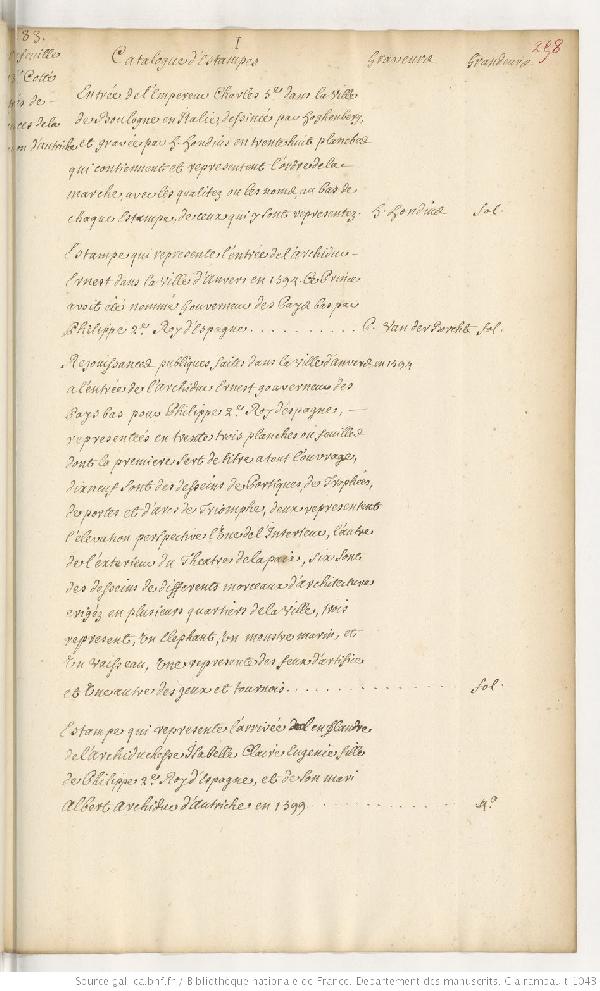 83.
1
298
feuille
Cotté
de
ces de la
on d'autriche
Catalogue d'Estampes Graveurs Grandeurs
Entrée de l'Empereur Charles 5e. dans la Ville
de Boulogne en Italie, dessinée par Hoghenberg,
et gravée par H. Hondius en trente huit planches
qui contiennent et representent l'ordre de la
marche, avec les qualitez ou les noms au bas de
chaque Estampe, de ceux qui y sont representez. H. Hondius fol.
Estampe qui represente l'entrée de l'archiduc
Ernest dans la Ville d'Anvers en 1594. Ce Prince
avoit eté nommé Gouverneur des Pays bas par
Philippe 2e. Roy d'Espagne.......... P. Van der Borcht fol.
Rejouissances publiques, faites dans la Ville d'anvers en 1594
a l'entrée de l'Archiduc Ernest gouverneur des
Pays bas pour Philippe 2e. Roy d'espagne,
representées en trente trois planches ou feuilles
dont la premiere sert de titre a tout l'ouvrage,
dixneuf sont des desseins de Portiques, de Trophées,
de portes et d'arcs de Triomphe, deux representent
l'élevation perspective l'Une de l'Interieur, l'autre
de l'exterieur du Theatre de la paix, six sont
des desseins de differents morceaux d'architecture
erigéz en plusieurs quartiers de la Ville, trois
represent, Un Elephant, Un monstre marin, et
Un Vaisseau, Une represente des feux d'artifice
et Une autre des jeux et tournois.............. fol.
Estampe qui represente l'arrivée en flandre
de l'archiduchesse Isabelle Claire Eugenie, fille
de Philippe 2e. Roy d'Espagne, et de son mari
Albert Archiduc d'Autriche en 1599.............. 4o
Source gallica.bnf.fr / Bibliothèque nationale de France. Département des manuscrits. Clairambault 1043